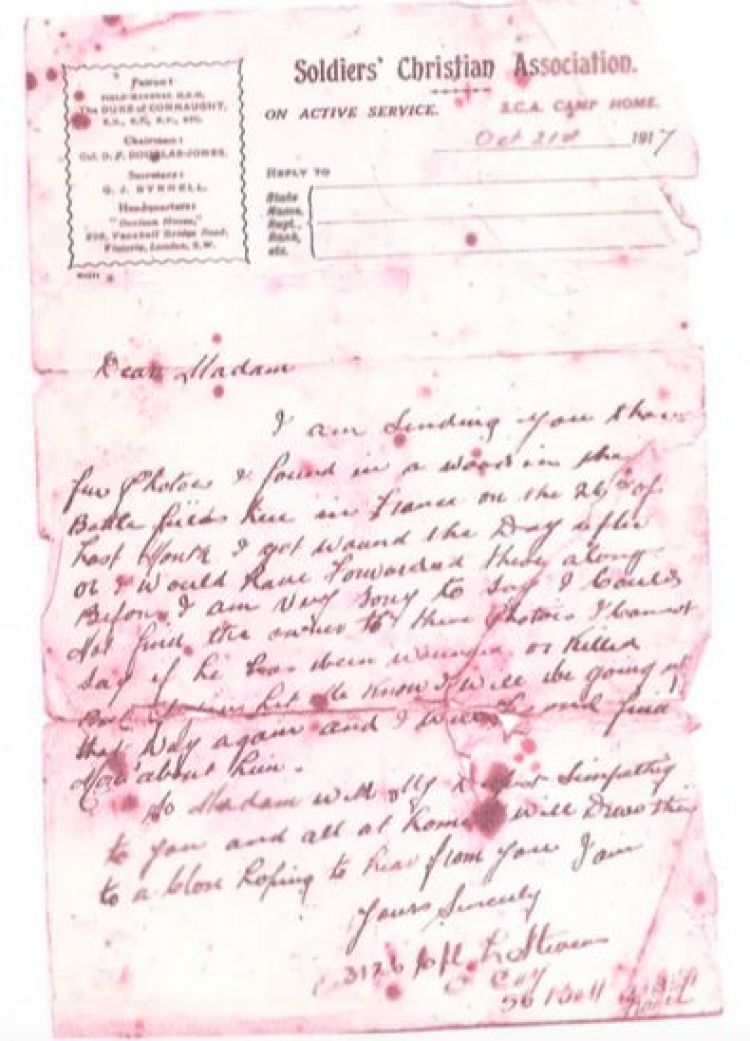 Soldiers' Christian Association.
ON ACTIVE SERVICE. S.C.A. CAMP HOME.
Oct 21st 1917
Patron:
FIELD-MARSHAL H.R.H.
The DUKE of CONNAUGHT,
Chairman:
Col. D. F. DOUGLAS-JONES.
Secretary:
Headquarters:
Victoria, London, S.W.
REPLY TO
State
Name,
Regt.,
Rank,
etc.
Dear Madam
I am sending you these
few Photos I found in a wood in the
Battle fields here in France on the 26th of
Last Month I got wound the Day after
or I would have Forwarded them along
Before I am very sorry to say I Could
Not find the owner to these Photos I Cannot
Say if he has been wounded or Killed
But let me Know I will be going up
that way again and I will find
out about him.
So Madam with my Simpathy
to you and all at home will Draw this
to a Close hoping to hear from you I am
Yours Sincerly
3126 Stevens
C Coy
56 Batt